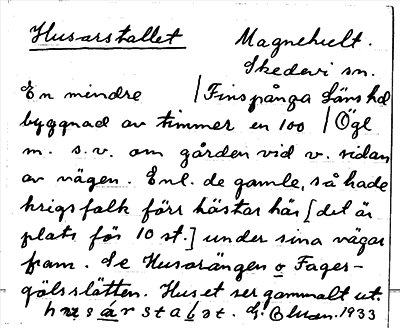 Husarstallet Magnehult.
Skedevi sn.
En mindre / Finspånga Läns hd
byggnad av timmer en 100 / Ögl
m. s.v. om gården vid v. sidan
av vägen. Enl. de gamle, så hade
krigsfolk förr hästar här [det är
plats för 10 st.] under sina vägar
fram. Se Husarängen o Fager-
gölsslätten. Huset ser gammalt ut.
husarstalet. 1933